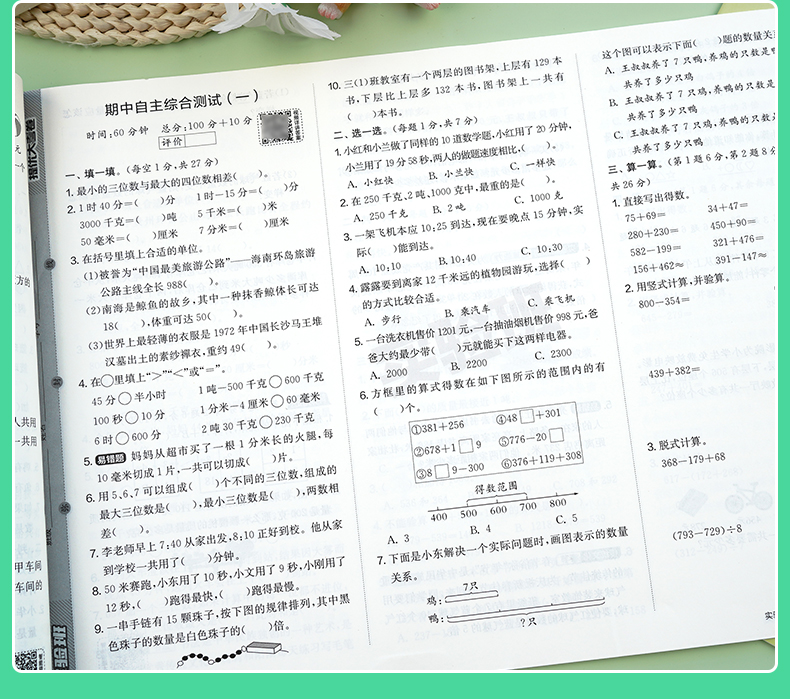 期中自主综合测试(一)
时间:60 分钟 总分:100 分+10 分
评价
一、填一填。(每空 1 分,共 27 分)
1. 最小的三位数与最大的四位数相差( )。
2. 1 时 40 分=( )分 1 时-15 分=( )分
3000 千克=( )吨 5 千米=( )米
50 毫米=( )厘米 7 分米=( )厘米
3. 在括号里填上合适的单位。
(1)被誉为“中国最美旅游公路”——海南环岛旅游
公路主线全长 988( )。
(2)南海是鲸鱼的故乡,其中一种抹香鲸体长可达
18( ),体重可达 50( )。
(3)世界上最轻薄的衣服是 1972 年中国长沙马王堆
汉墓出土的素纱襌衣,重约 49( )。
4. 在○里填上“>”“<”或“=”。
45 分○半小时 1 吨-500 千克○600 千克
100 秒○10 分 1 分米-4 厘米○60 毫米
6 时○600 分 2 吨 30 千克○230 千克
5. 易错题 妈妈从超市买了一根 1 分米长的火腿,每
10 毫米切成 1 片,一共可以切成( )片。
6. 用 5、6、7 可以组成( )个不同的三位数,组成的
最大三位数是( ),最小三位数是( ),两数相
差( )。
7. 李老师早上 7:40 从家出发,8:10 正好到校。他从家
到学校一共用了( )分钟。
8. 50 米赛跑,小东用了 10 秒,小文用了 9 秒,小刚用了
12 秒,( )跑得最快,( )跑得最慢。
9. 一串手链有 15 颗珠子,按下图的规律排列,其中黑
色珠子的数量是白色珠子的( )倍。
10. 三(1)班教室有一个两层的图书架,上层有 129 本
书,下层比上层多 132 本书,图书架上一共有
( )本书。
二、选一选。(每题 1 分,共 7 分)
1. 小红和小兰做了同样的 10 道数学题,小红用了 20 分钟,
小兰用了 19 分 58 秒,两人的做题速度相比,( )。
A. 小红快 B. 小兰快 C. 一样快
2. 在 250 千克、2 吨、1000 克中,最重的是( )。
A. 250 千克 B. 2 吨 C. 1000 克
3. 一架飞机本应 10:25 到达,现在要晚点 15 分钟,实
际( )能到达。
A. 10:10 B. 10:40 C. 10:30
4. 露露要到离家 12 千米远的植物园游玩,选择( )
的方式比较合适。
A. 步行 B. 乘汽车 C. 乘飞机
5. 一台洗衣机售价 1201 元,一台抽油烟机售价 998 元,爸
爸大约最少带( )元就能买下这两样电器。
A. 2000 B. 2200 C. 2300
6. 方框里的算式得数在如下图所示的范围内的有
( )个。
①381+256 ④48□+301
②678+1□9 ⑤776-20□
③8□9-300 ⑥376+119+308
得数范围
400 500 600 700 800
A. 3 B. 4 C. 5
7. 下面是小东解决一个实际问题时,画图表示的数量
关系。
7只
鸡:
鸭:
?只
这个图可以表示下面( )题的数量关
A. 王叔叔养了 7 只鸭,养鸡的只数是
共养了多少只鸡
B. 王叔叔养了 7 只鸡,养鸭的只数是
共养了多少只鸭
C. 王叔叔养了 7 只鸡,养鸭的只数
共养了多少只鸭
三、算一算。(第 1 题 6 分,第 2 题 8 分
共 26 分)
1. 直接写出得数。
75+69= 34+47=
280+230= 450+90=
582-199= 321+476=
156+462≈ 391-147≈
2. 用竖式计算,并验算。
800-354=
439+382=
3. 脱式计算。
368-179+68
(793-729)÷8